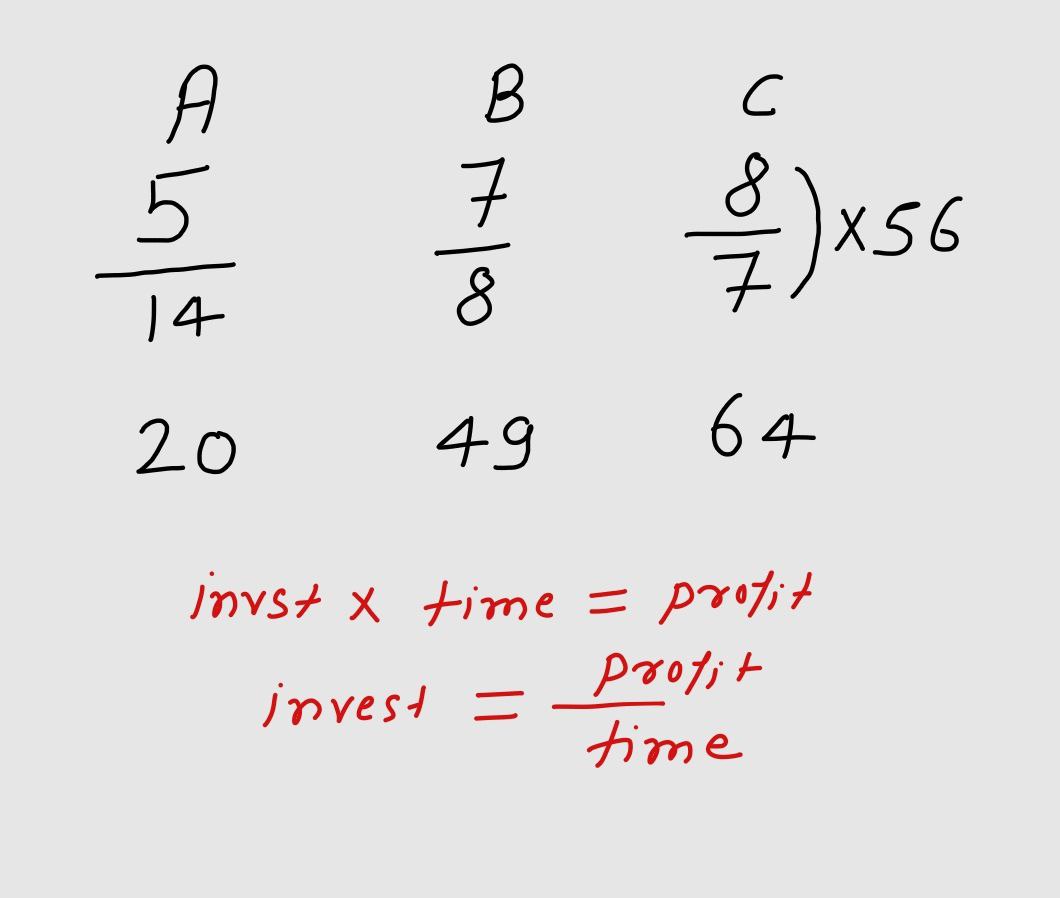 A B C
5/14 7/8 8/7) x 56
20 49 64
invst x time = profit
invest = profit/time